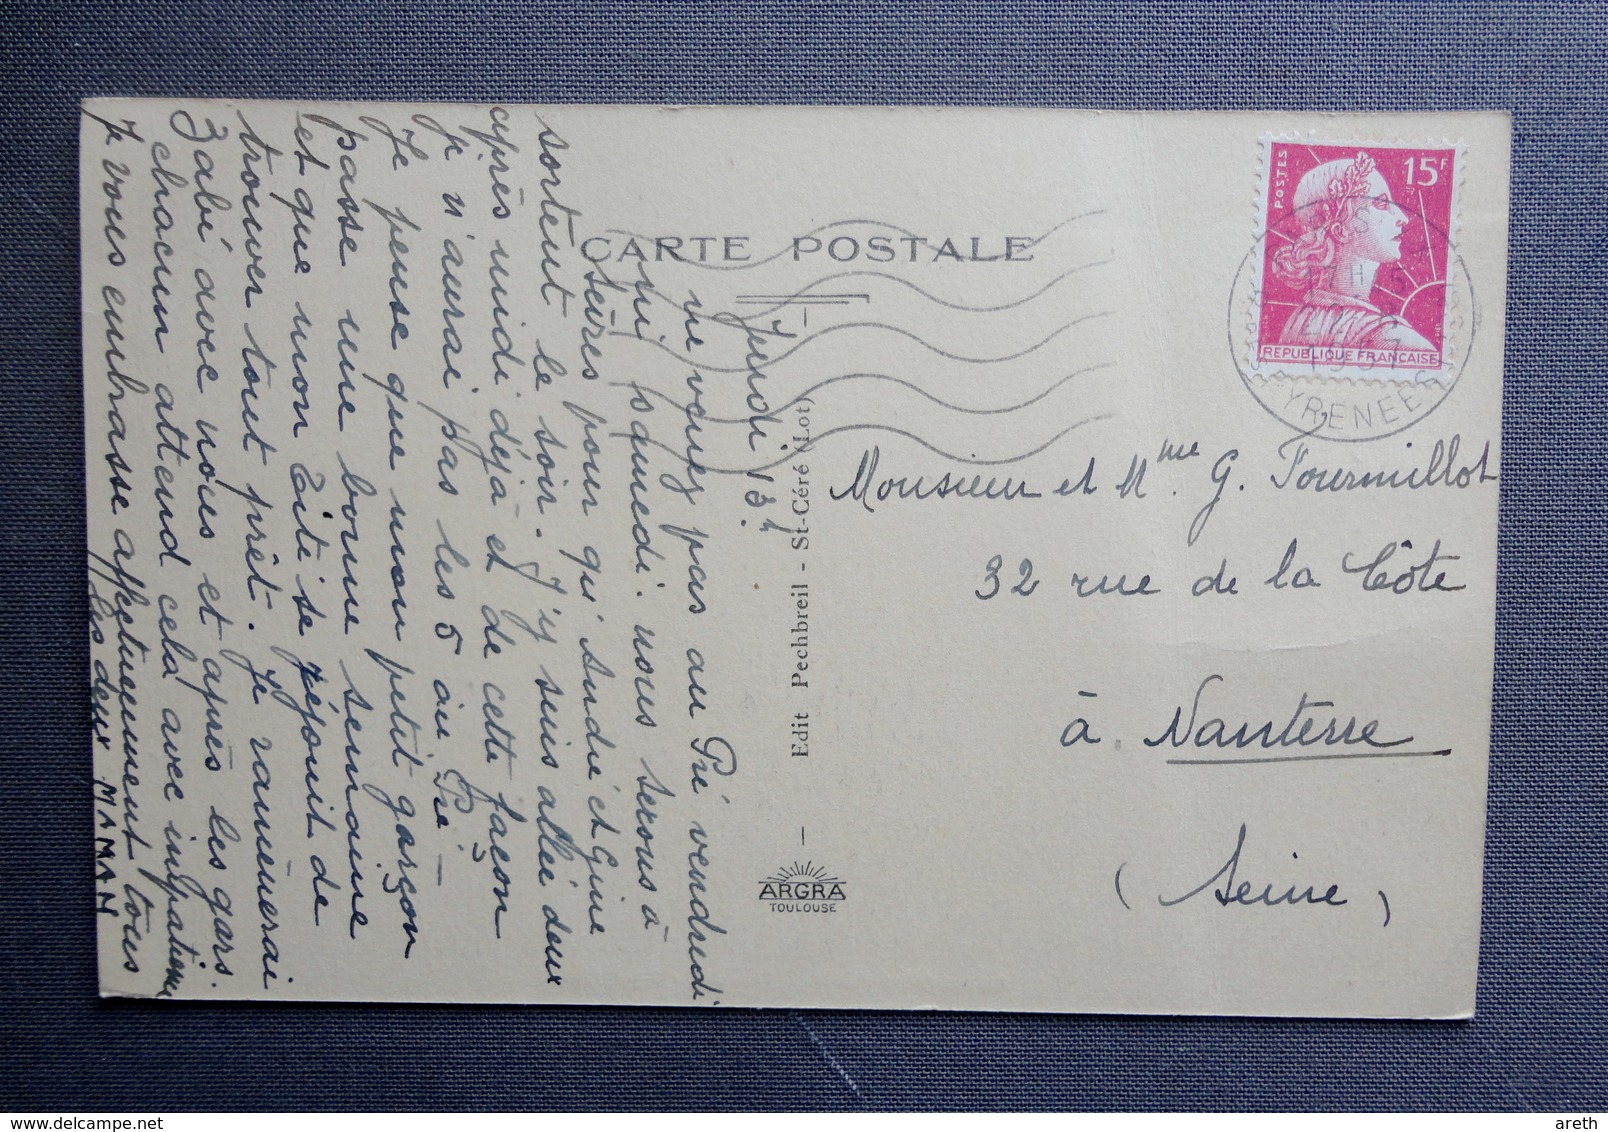 CARTE POSTALE
Jeudi 13 h
ne venez pas au Pré vendredi
ni samedi. nous serons à
Sèvres pour qu'André et Gine
sortent le soir. J'y suis allée deux
après midi déjà et de cette façon
je n'aurai pas les 5 au Pré –
Je pense que mon petit garçon
passe une bonne semaine
et que mon Titi se réjouit de
trouver tout prêt. Je ramènerai
Babé avec nous et après les gars.
chacun attend cela avec impatience
Je vous embrasse affectueusement tous
les deux MAMAN
Edit Pechbreil - St-Céré (Lot)
ARGRA
TOULOUSE
POSTES
15F
REPUBLIQUE FRANÇAISE
17H
1957
PYRENEES
Monsieur et Mme. G. Fourmillot
32 rue de la Côte
à Nanterre
(Seine)
delcampe.net
areth